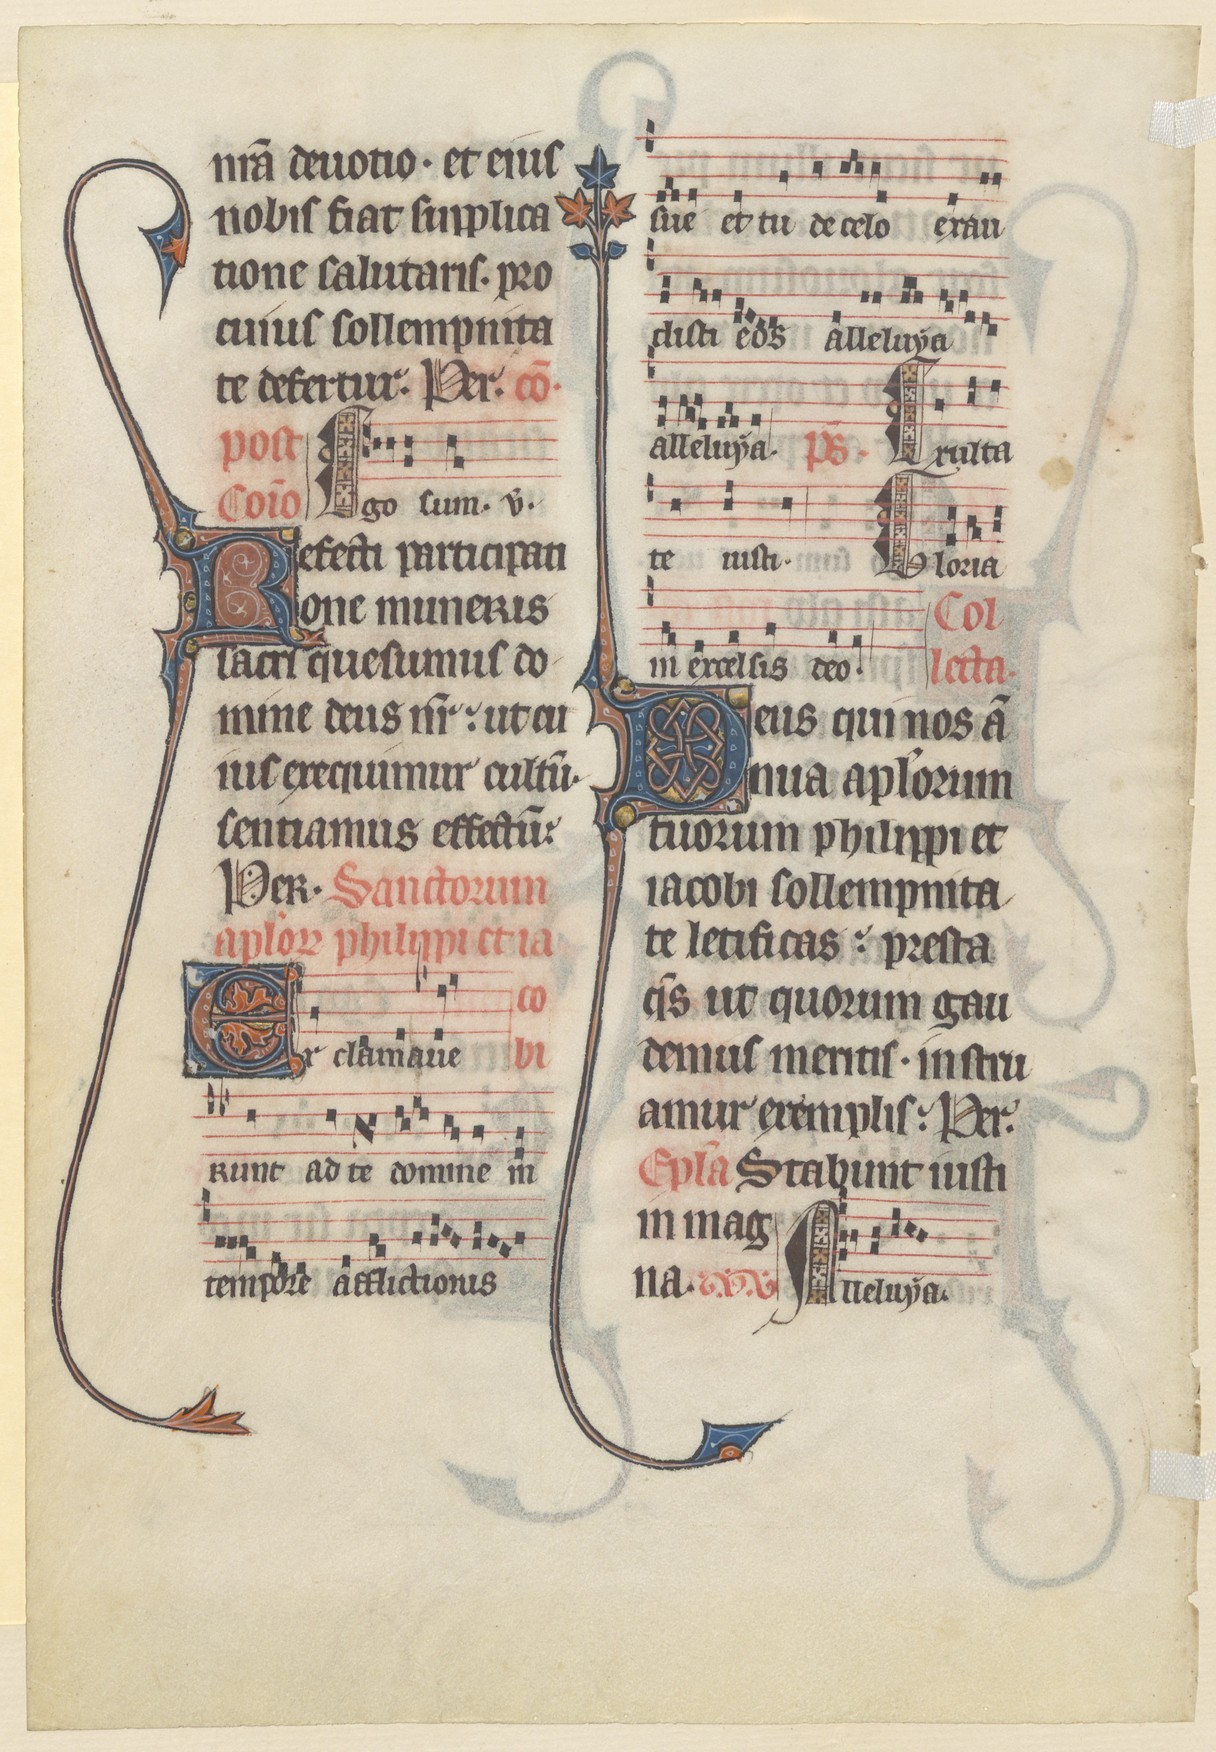 nr̄a deuotio · et eius
nobis fiat supplica
tione salutaris · pro
cuius sollempnita
te defertur : Per. cō ·
post
Coīo Ego sum · v̄ ·
Refecti participati
one muneris
sacri quesumus do
mine deus nr̄ : ut cu
ius exequimur cultū ·
sentiamus effectū :
Per · Sanctorum
aplor̄ philippi et ia
co
Exclamaue bi
runt ad te domine in
tempore afflictionis
sue et tu de celo exau
disti eos alleluya
alleluya · ps̄ · Exulta
te iusti · Gloria
in excelsis deo · Col
lecta ·
Deus qui nos ā
nua aplorum
tuorum philippi et
iacobi sollempnita
te letificas : presta
qs̄ ut quorum gau
demus meritis · instru
amur exemplis : Per.
Epla Stabunt iusti
in mag
na · Alleluya ·